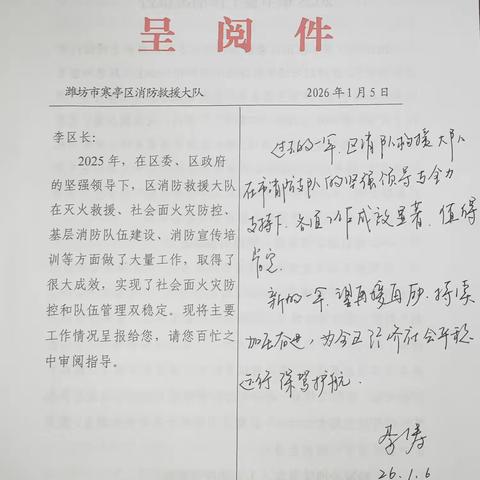 呈阅件
潍坊市寒亭区消防救援大队
2026年1月5日
李区长：
2025年，在区委、区政府
的坚强领导下，区消防救援大队
在灭火救援、社会面火灾防控、
基层消防队伍建设、消防宣传培
训等方面做了大量工作，取得了
很大成效，实现了社会面火灾防
控和队伍管理双稳定。现将主要
工作情况呈报给您，请您百忙之
中审阅指导。
过去的一年，区消防救援大队
在市消防支队的坚强领导与全力
支持下，各项工作成效显著，值得
肯定。
新的一年，望再接再厉，持续
加压奋进，为全区经济社会平稳
运行保驾护航。
李涛
26.1.6